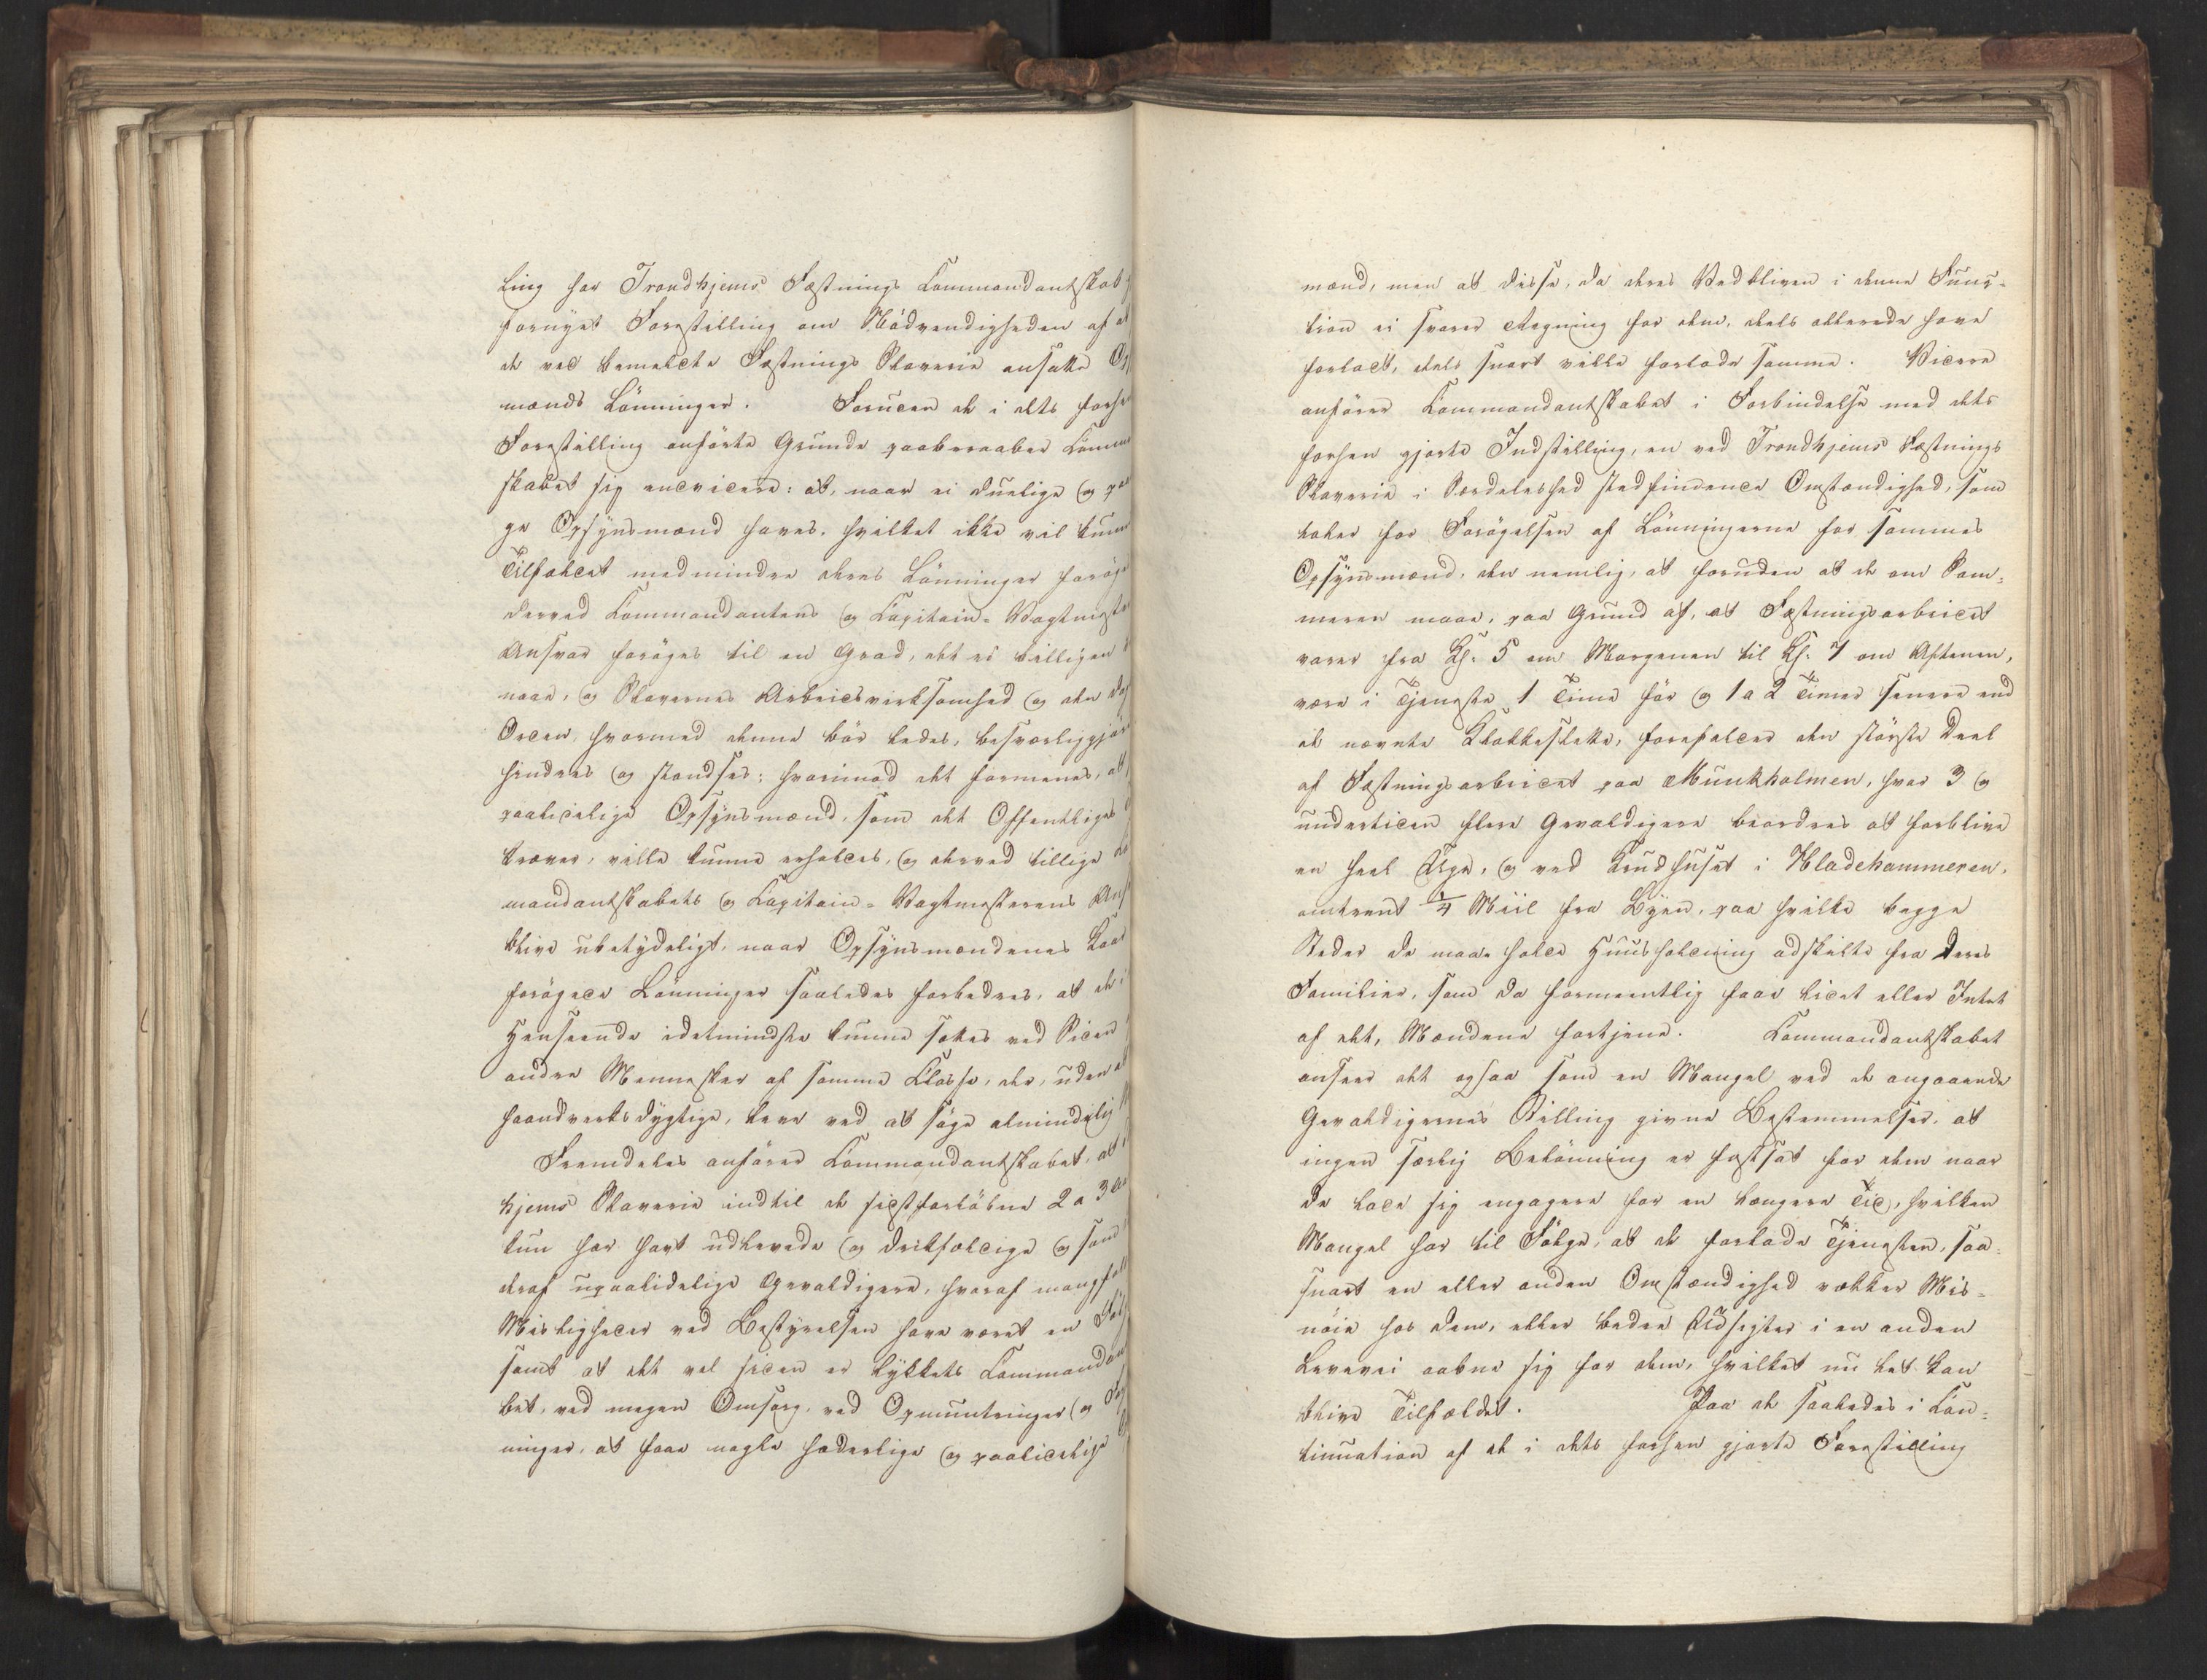 ling har Trondhjems Fæstnings Commandantskab
fornyet Forestilling om Nödvendigheden af at
de ved bemeldte Fæstnings Slaverie ansatte
mænds Lönninger. Foruden de i dets
Forestilling anförte Grunde paaberaaber
skabet sig endvidere: at, naar ei duelige og
ge Opsynsmænd haves, hvilket ikke vil
Tilfældet medmindre deres Lönninger
derved Commandantens og Capitain-
Ansvar foröges til en Grad, det ei billigen
naae, og Slavernes Arbeidsvirksomhed og den
Orden, hvormed denne bör ledes,
hindres og standses; hvorimod det formenes,
paalidelige Opsynsmænd, som det Offentliges
kræver, ville kunne erholdes, og derved tillige
mandantskabets og Capitain-Vagtmesterens
blive ubetydeligt, naar Opsynsmændenes Kaar
forögede Lönninger saaledes forbedres, at de i
Henseende idetmindste kunne sættes ved Siden
andre Mennesker af samme Classe, der, uden at
haandverksdygtige, leve ved at söge almindelig
Fremdeles anförer Commandantskabet, at
hjems Slaverie indtil de sidstforløbne 2 a 3
kun har havt udlevede og drikfældige og som
deraf upaalidelige Gevaldigere, hvoraf
Misligheder ved Bestyrelsen have været en
samt at det vel siden er lykkets
bet, ved megen Omsorg, ved Opmuntringer og
ninger, at faae nogle hæderlige og paalidelige
mænd, men at disse, da deres Vedbliven i denne Func-
tion ei svarer Regning for dem, deels allerede have
forladt, deels snart ville forlade samme. Videre
anförer Commandantskabet i Forbindelse med dets
forhen gjorte Indstilling, en ved Trondhjems Fæstnings
Slaverie i Særdeleshed stedfindende Omstændighed, som
taler for Forögelsen af Lönningerne for sammes
Opsynsmænd, den nemlig, at foruden at de om Som-
meren maae, paa Grund af, at Fæstningsarbeidet
varer fra Kl. 5 om Morgenen til Kl. 7 om Aftenen,
være i Tjeneste 1 Time för og 1 a 2 Timer senere end
de nævnte Klokkeslette, forefalder den störste Deel
af Fæstningsarbeidet paa Munkholmen, hvor 3 og
undertiden flere Gevaldigere beordres at forblive
en heel Uge, og ved Krudhuset i Hladehammeren,
omtrent 1/4 Miil fra Byen, paa hvilke begge
Steder de maae holde Huusholdning adskilte fra deres
Familier, som da formeentlig faae lidet eller Intet
af det, Mændene fortjene. Commandantskabet
anseer det ogsaa som en Mangel ved de angaaende
Gevaldigernes Stilling givne Bestemmelser, at
ingen særlig Belönning er fastsat for dem naar
de lade sig engagere for en længere Tid, hvilken
Mangel har til Fölge, at de forlade Tjenesten, saa-
snart en eller anden Omstændighed vækker Mis-
nöie hos dem, eller bedre Udsigter i en anden
Levevei aabne sig for dem, hvilket nu let kan
blive Tilfældet. Paa de saaledes i Con-
tinuation af de i dets forhen gjorte Forestilling